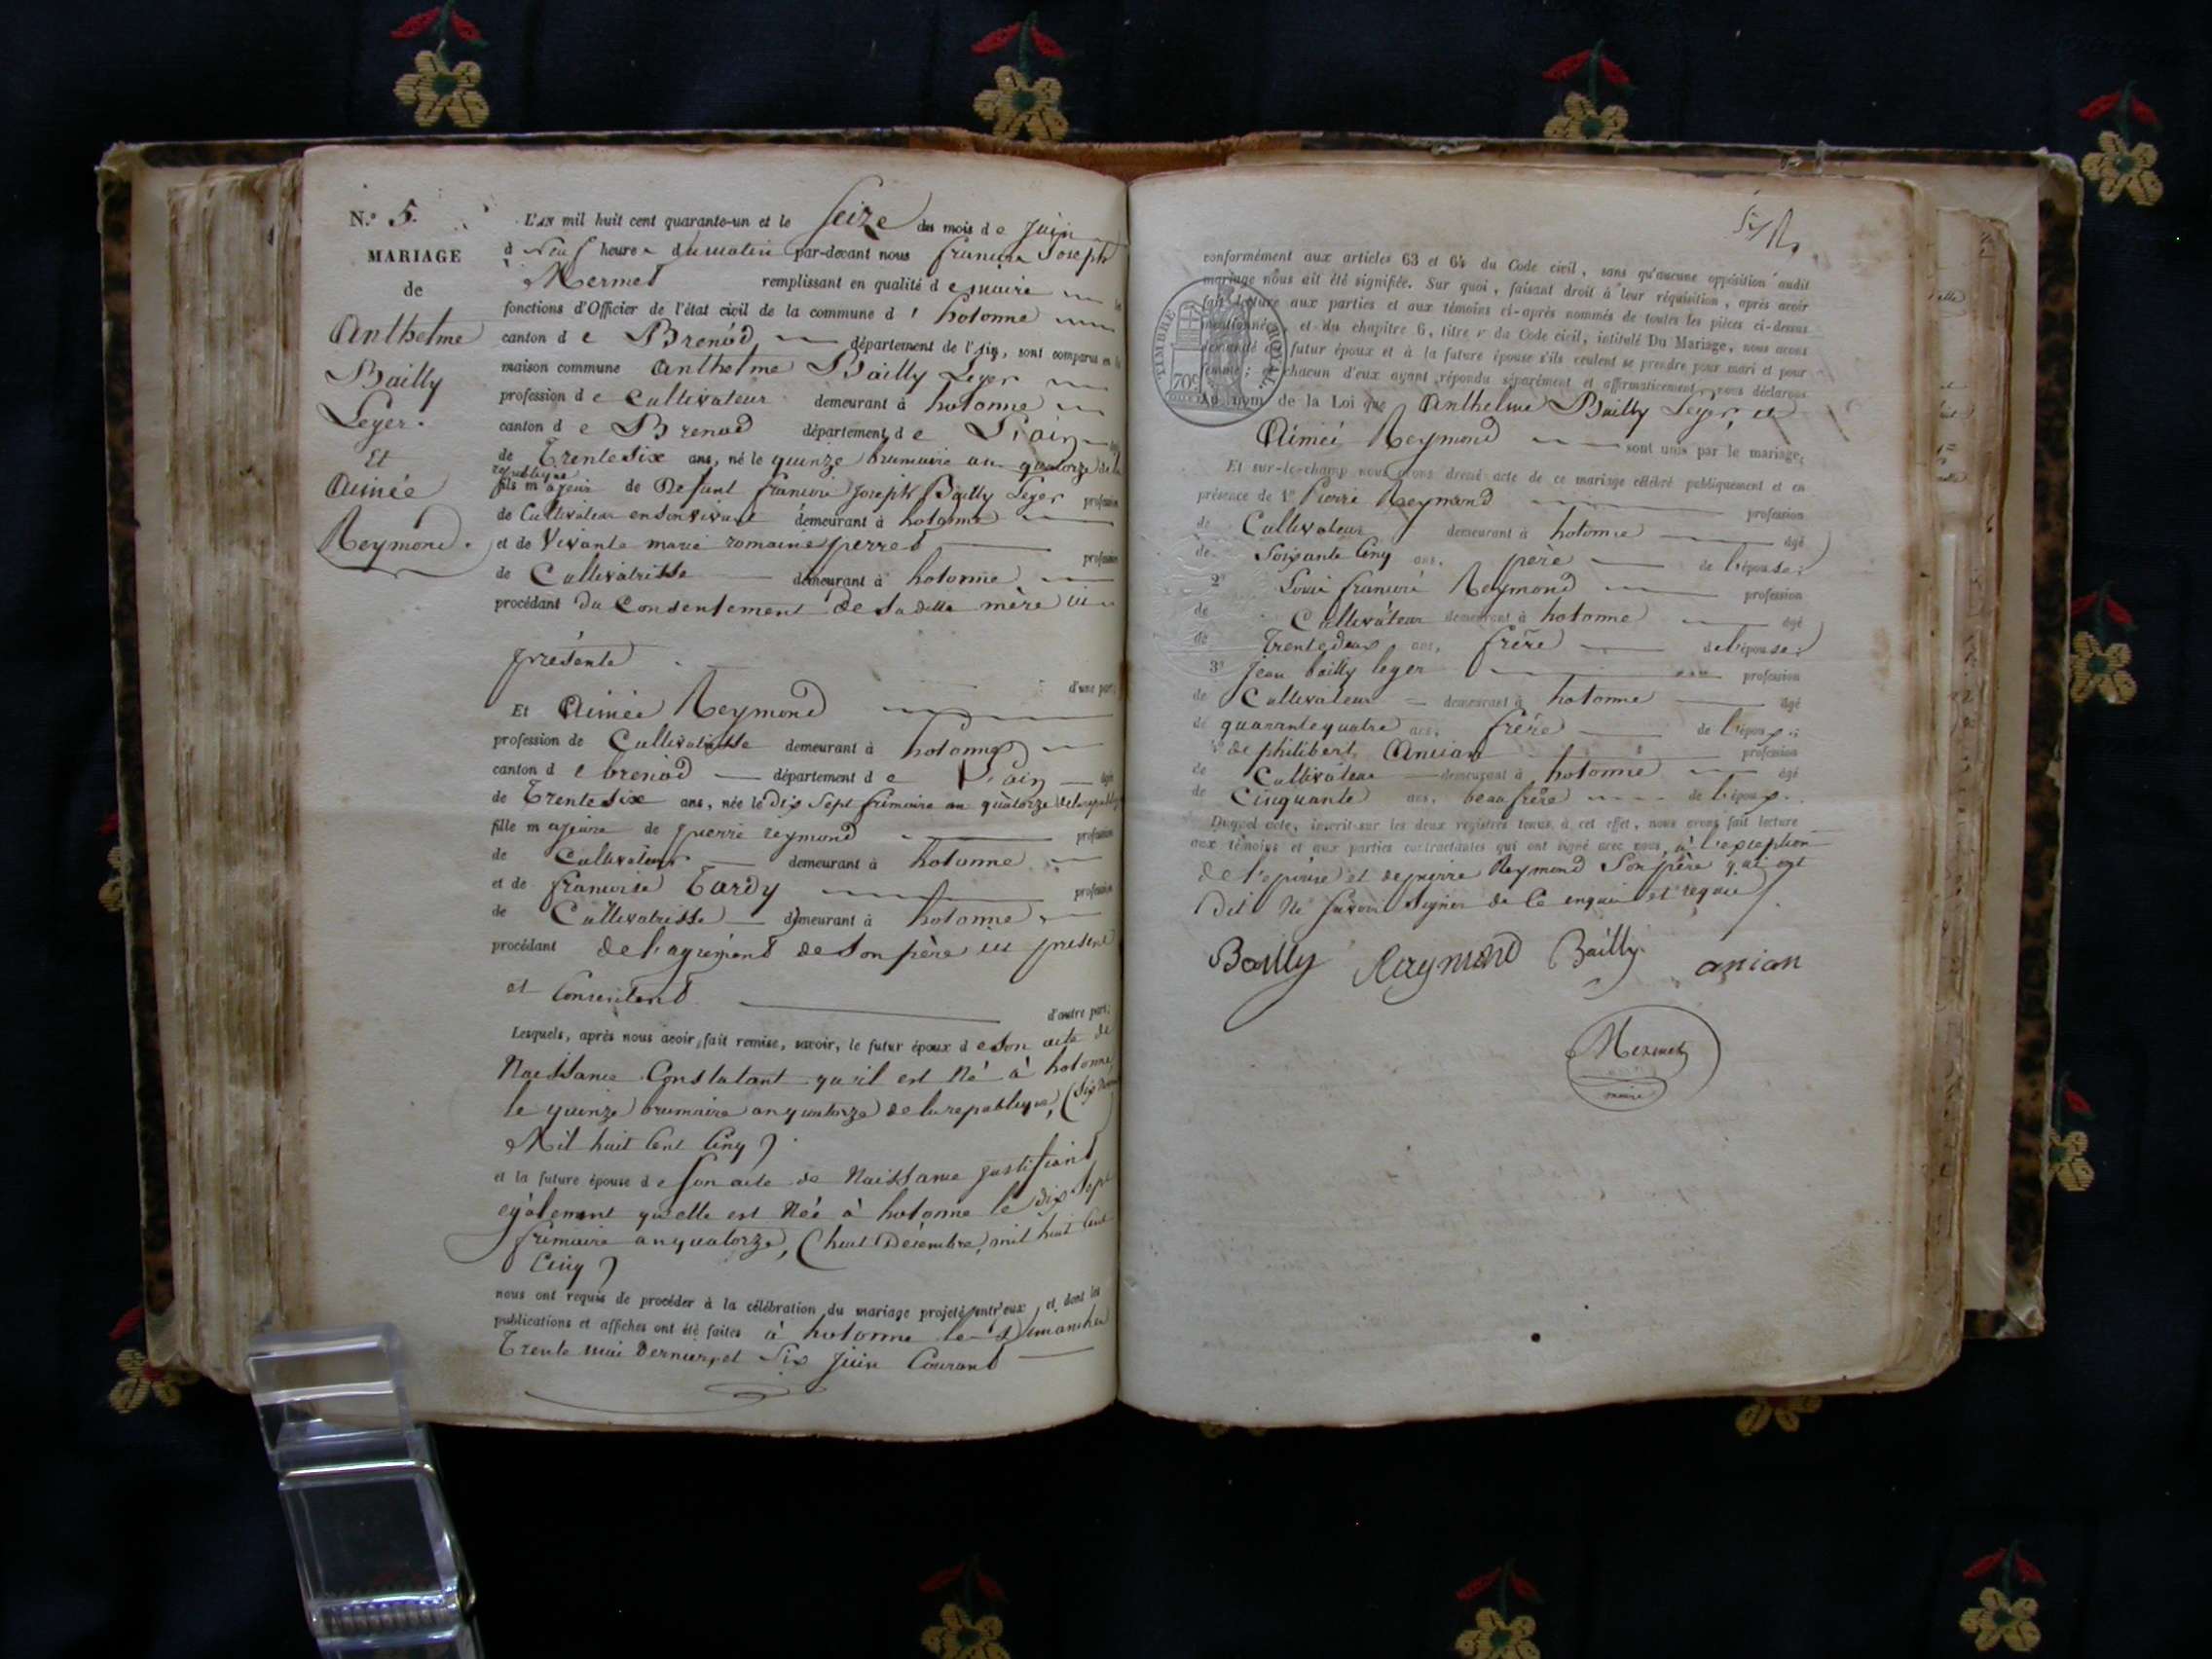 N.º 5.
MARIAGE
de
Anthelme
Bailly
Leger.
Et
Aimée
Reymond.
L'AN mil huit cent quarante-un et le seize du mois de juin
à neuf heures du matin par-devant nous françois Joseph
Mermet remplissant en qualité de maire
fonctions d'Officier de l'état civil de la commune d' hotonne
canton de Brenod département de l'Ain, sont comparus en la
maison commune Anthelme Bailly Leger
profession de Cultivateur demeurant à hotonne
canton de Brenod département de L'ain
de Trente Six ans, né le quinze brumaire an quatorze de la
republique
fils majeur de Defunt françois Joseph Bailly Leger profession
de Cultivateur en son vivant demeurant à hotonne
et de Vivante marie romaine perret profession
de Cultivatrisse demeurant à hotonne
procédant du Consentement de Sa dette mère ici
présente
d'une part;
Et Aimée Reymond
profession de Cultivatrisse demeurant à hotonne
canton de brenod département de L'ain âgée
de Trente Six ans, née le Dix Sept frimaire an quatorze de la republique
fille majeure de pierre reymond profession
de Cultivateur demeurant à hotonne
et de francoise Tardy profession
de Cultivatrisse demeurant à hotonne
procédant de l'agrement de Son père ici present
et Consentent
d'autre part;
Lesquels, après nous avoir fait remise, savoir, le futur époux de Son acte de
Naissance Constatant qu'il est Né à hotonne
le quinze brumaire an quatorze de la republique, (Six
Mil huit Cent Cinq)
et la future épouse de Son acte de Naissance justifiant
également qu'elle est Née à hotonne le dix Sept
frimaire an quatorze, (huit Décembre mil huit Cent
Cinq)
nous ont requis de procéder à la célébration du mariage projeté entr'eux, et dont les
publications et affiches ont été faites à hotonne les Dimanches
Trente mai Dernier, et Six Juin Courant
conformément aux articles 63 et 64 du Code civil, sans qu'aucune opposition audit
mariage nous ait été signifiée. Sur quoi, faisant droit à leur réquisition, après avoir
fait lecture aux parties et aux témoins ci-après nommés de toutes les pièces ci-dessus
mentionnées, et du chapitre 6, titre v du Code civil, intitulé Du Mariage, nous avons
demandé au futur époux et à la future épouse s'ils veulent se prendre pour mari et pour
femme; chacun d'eux ayant répondu séparément et affirmativement, nous déclarons
au nom de la Loi que Anthelme Bailly Leger, et
Aimée Reymond sont unis par le mariage;
TIMBRE ROYAL
70c
Et sur-le-champ nous avons dressé acte de ce mariage célébré publiquement et en
présence de 1º Pierre Reymond profession
de Cultivateur demeurant à hotonne âgé
de Soixante Cinq ans, père de l'épouse;
2º Louis françois Reymond profession
de Cultivateur demeurant à hotonne âgé
de Trente deux ans, frère de l'épouse;
3º Jean bailly leger profession
de Cultivateur demeurant à hotonne âgé
de quarante quatre ans, frère de l'époux;
4º de philibert Ancian profession
de Cultivateur demeurant à hotonne âgé
de Cinquante ans, beau frère de l'époux.
Duquel acte, inscrit sur les deux registres tenus à cet effet, nous avons fait lecture
aux témoins et aux parties contractantes qui ont signé avec nous, à l'exception
de l'épouse et de pierre Reymond Son père qui ont
Dit Ne Savoir Signer de Ce enquis et requis
Bailly Raymond Bailly anian
Mermet
maire